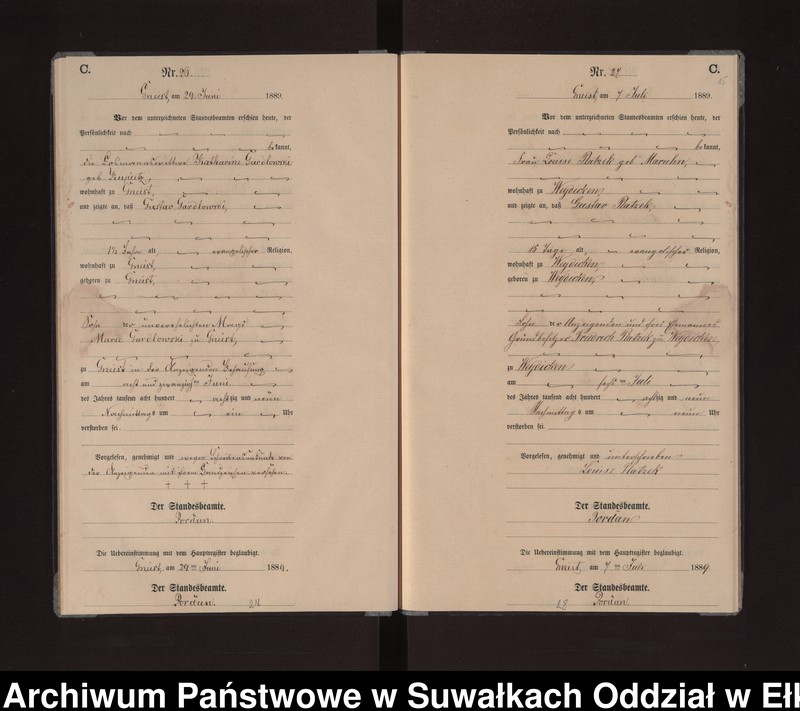 C.
Nr. 26.
Gneist, am 29. Juni 1889.
Vor dem unterzeichneten Standesbeamten erschien heute, der
Persönlichkeit nach
bekannt,
die Losmannswittwe Katharine Gardlowski
geb.
wohnhaft zu Gneist,
und zeigte an, daß Gustav Gardlowski,
1½ Jahre alt, evangelischer Religion,
wohnhaft zu Gneist,
geboren zu Gneist,
Sohn der unverehelichten Magd
Marie Gardlowski zu Gneist,
zu Gneist in der Anzeigenden Behausung
am acht und zwanzigsten Juni
des Jahres tausend acht hundert achtzig und neun
Nachmittags um ein Uhr
verstorben sei.
Vorgelesen, genehmigt und wegen Schreibensunkunde von
der Anzeigenden mit ihrem Handzeichen versehen.
† † †
Der Standesbeamte.
Jordan.
Die Uebereinstimmung mit dem Hauptregister beglaubigt.
Gneist, am 29ten Juni 1889.
Der Standesbeamte.
Jordan.
C.
Nr. 27
Gneist, am 7 Juli 1889.
Vor dem unterzeichneten Standesbeamten erschien heute, der
Persönlichkeit nach
bekannt,
Frau Louise Platzek geb
wohnhaft zu Weydicken
und zeigte an, daß Gustav Platzek,
15 Tage alt, evangelischer Religion,
wohnhaft zu Weydicken,
geboren zu Weydicken,
Sohn der Anzeigenden und ihres Ehemannes
Grundbesitzer Friedrich Platzek zu Weydicken,
zu Weydicken
am sechsten Juli
des Jahres tausend acht hundert achtzig und neun
Nachmittags um neun Uhr
verstorben sei.
Vorgelesen, genehmigt und unterschrieben
Louise Platzek
Der Standesbeamte.
Jordan
Die Uebereinstimmung mit dem Hauptregister beglaubigt.
Gneist, am 7ten Juli 1889
Der Standesbeamte.
Jordan.
Archiwum Państwowe w Suwałkach Oddział w Ełk